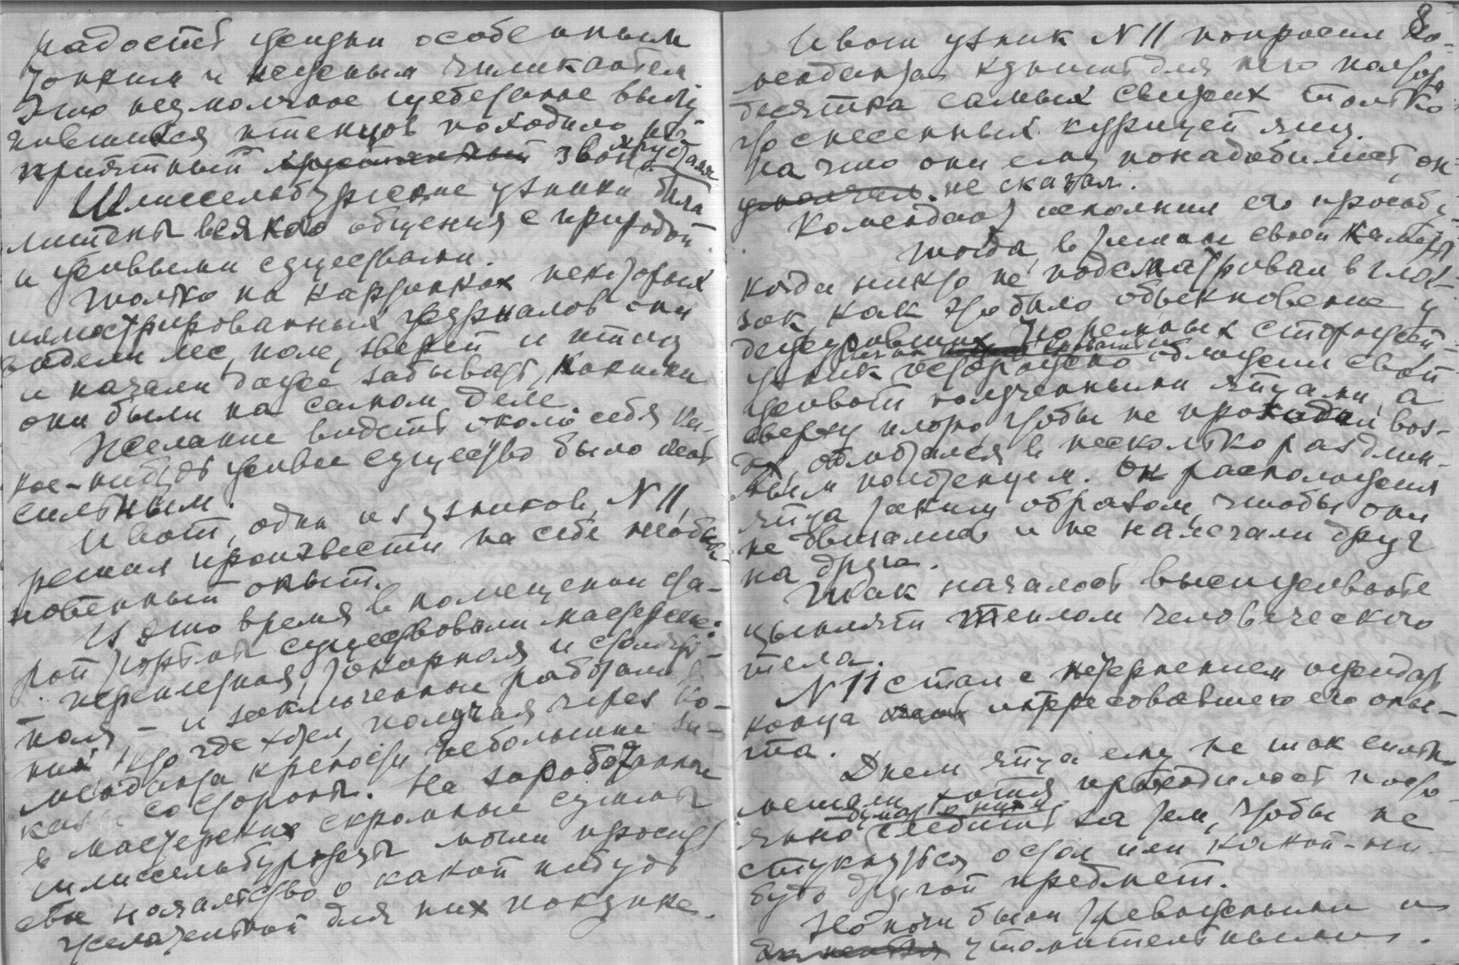 радость жизни особенным
тонким и нежным чиликантем.
Это неумолчное щебетание вылу-
пившихся птенцов походило на
приятный звон хрусталя
Шлиссельбургские узники были
лишены всякого общения с природой
и живыми существами.
Только на картинках некоторых
иллюстрированных журналов они
видели лес, поле, зверей и птиц
и начали даже забывать, какими
они были на самом деле.
Желание видеть около себя ка-
кое-нибудь живое существо было
сильным.
И вот, один из узников, N 11,
решил произвести на себе необык-
новенный опыт.
В это время в помещении ста-
рой тюрьмы существовали мастерские:
переплетная, токарная и столяр-
ная – и заключенные работали в
них, кто где хотел, получая через ко-
менданта крепости небольшие за-
казы со стороны. На заработанные
в мастерских скромные суммы
шлиссельбуржцы могли просить
свое начальство о какой нибудь
желательной для них покупке.
8
И вот узник N 11 попросил ко-
менданта купить для него полтора
десятка самых свежих только
что снесенных курицей яиц.
На что они ему понадобились, он
не сказал.
Комендант исполнил его просьбу.
Тогда, в тиши своей камеры,
когда никто не подсматривал в гла-
зок, как это было обыкновение у
дежуривших тюремных сторожей,
узник осторожно обложил свой
живот полученными яйцами, а
сверху плотно, чтобы не проходил воз-
дух, обмотался в несколько раз длин-
ным полотенцем. Он расположил
яйца таким образом, чтобы они
не двигались и не налегали друг
на друга.
Так началось высиживание
цыплят теплом человеческого
тела.
N 11 стал с нетерпением ожидать
конца интересовавшего его опы-
та.
Днем яйца ему не так сильно
мешали, хотя приходилось посто-
янно следить за тем, чтобы не
стукнуться о стол или какой-ни-
будь другой предмет.
Но ночи были тревожными и
утомительными.